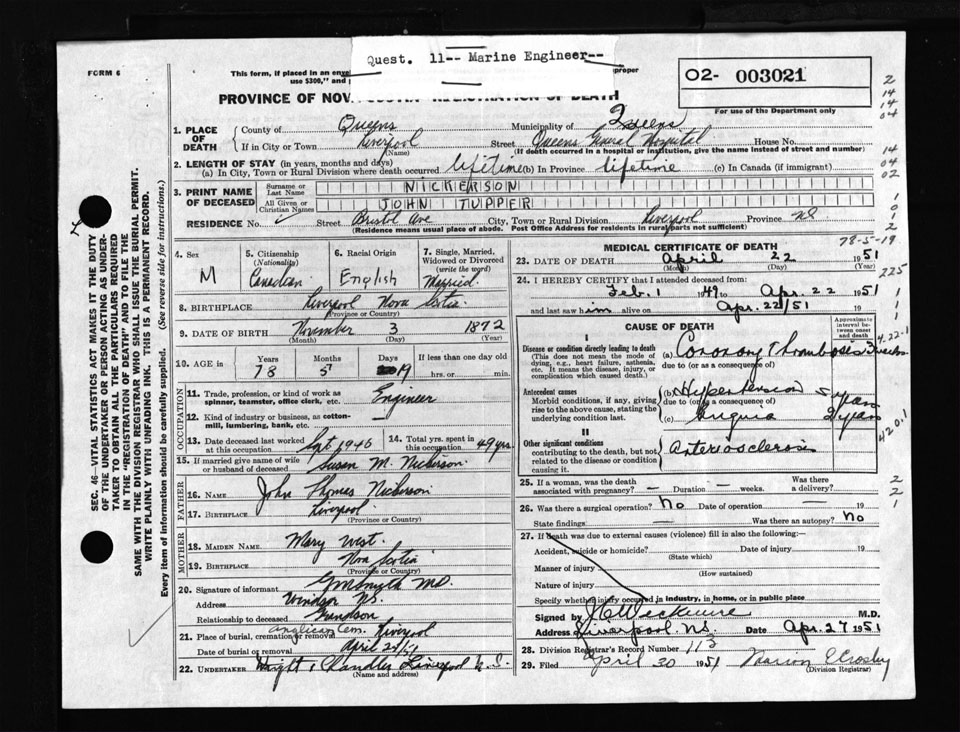 Quest. 11-- Marine Engineer--
FORM 6
This form, if placed in an enve proper
use $300," and p
02- 003021
PROVINCE OF NOVA SCOTIA REGISTRATION OF DEATH
For use of the Department only
1. PLACE OF DEATH
County of Queens Municipality of Queens
If in City or Town Liverpool Street Queens General Hospital House No.
(Name) (If death occurred in a hospital or institution, give the name instead of street and number)
2. LENGTH OF STAY (in years, months and days)
(a) In City, Town or Rural Division where death occurred lifetime (b) In Province lifetime (c) In Canada (if immigrant)
3. PRINT NAME OF DECEASED
Surname or Last Name NICKERSON
All Given or Christian Names JOHN TUPPER
RESIDENCE No. Street Bristol Ave City, Town or Rural Division Liverpool Province NS
(Residence means usual place of abode. Post Office Address for residents in rural parts not sufficient)
4. Sex M
5. Citizenship (Nationality) Canadian
6. Racial Origin English
7. Single, Married, Widowed or Divorced (write the word) Married
8. BIRTHPLACE Liverpool Nova Scotia
(Province or Country)
9. DATE OF BIRTH November 3 1872
(Month) (Day) (Year)
10. AGE in Years 78 Months 5 Days 19 If less than one day old
hrs. or min.
OCCUPATION
11. Trade, profession, or kind of work as spinner, teamster, office clerk, etc. Engineer
12. Kind of industry or business, as cotton-mill, lumbering, bank, etc.
13. Date deceased last worked at this occupation Sept. 1946 14. Total yrs. spent in this occupation 49 yrs.
15. If married give name of wife or husband of deceased Susan M. Nickerson
FATHER
16. NAME John Thomas Nickerson
17. BIRTHPLACE Liverpool
(Province or Country)
MOTHER
18. MAIDEN NAME Mary West.
19. BIRTHPLACE Nova Scotia
(Province or Country)
20. Signature of informant G M Smyth MD.
Address Windsor NS.
Relationship to deceased Grandson
21. Place of burial, cremation or removal Anglican Cem. Liverpool
Date of burial or removal April 24/51
22. UNDERTAKER Wright & Chandler Liverpool N.S.
(Name and address)
MEDICAL CERTIFICATE OF DEATH
78-5-19
23. DATE OF DEATH April 22 1951
(Month) (Day) (Year)
24. I HEREBY CERTIFY that I attended deceased from:
Feb. 1 1949 to Apr. 22 1951
and last saw him alive on Apr. 22/51 19
CAUSE OF DEATH
Approximate interval between onset and death
I
Disease or condition directly leading to death
(This does not mean the mode of dying, e.g., heart failure, asthenia, etc. It means the disease, injury, or complication which caused death.)
(a) Coronary Thrombosis 3 weeks
due to (or as a consequence of)
Antecedent causes
Morbid conditions, if any, giving rise to the above cause, stating the underlying condition last.
(b) Hypertension 5 years
due to (or as a consequence of)
(c) Angina 2 years
II
Other significant conditions
contributing to the death, but not related to the disease or condition causing it.
Arteriosclerosis
25. If a woman, was the death associated with pregnancy? — Duration — weeks. Was there a delivery?
26. Was there a surgical operation? No Date of operation 19
State findings — Was there an autopsy? No
27. If death was due to external causes (violence) fill in also the following:—
Accident, suicide or homicide? Date of injury 19
(State which)
Manner of injury
(How sustained)
Nature of injury
Specify whether injury occurred in industry, in home, or in public place
Signed by J C Wickwire M.D.
Address Liverpool. N.S. Date Apr. 27 1951
28. Division Registrar's Record Number 113
29. Filed April 30 1951 Marion E Crosby
(Division Registrar)
SEC. 46—VITAL STATISTICS ACT MAKES IT THE DUTY
OF THE UNDERTAKER OR PERSON ACTING AS UNDER-
TAKER TO OBTAIN ALL THE PARTICULARS REQUIRED
IN THE "REGISTRATION OF DEATH" AND TO FILE THE
SAME WITH THE DIVISION REGISTRAR WHO SHALL ISSUE THE BURIAL PERMIT.
WRITE PLAINLY WITH UNFADING INK. THIS IS A PERMANENT RECORD.
Every item of information should be carefully supplied. (See reverse side for instructions.)
2
14
14
04
14
04
02
1
0
1
2
225
1
1
1
422-1
4201
2
2
1